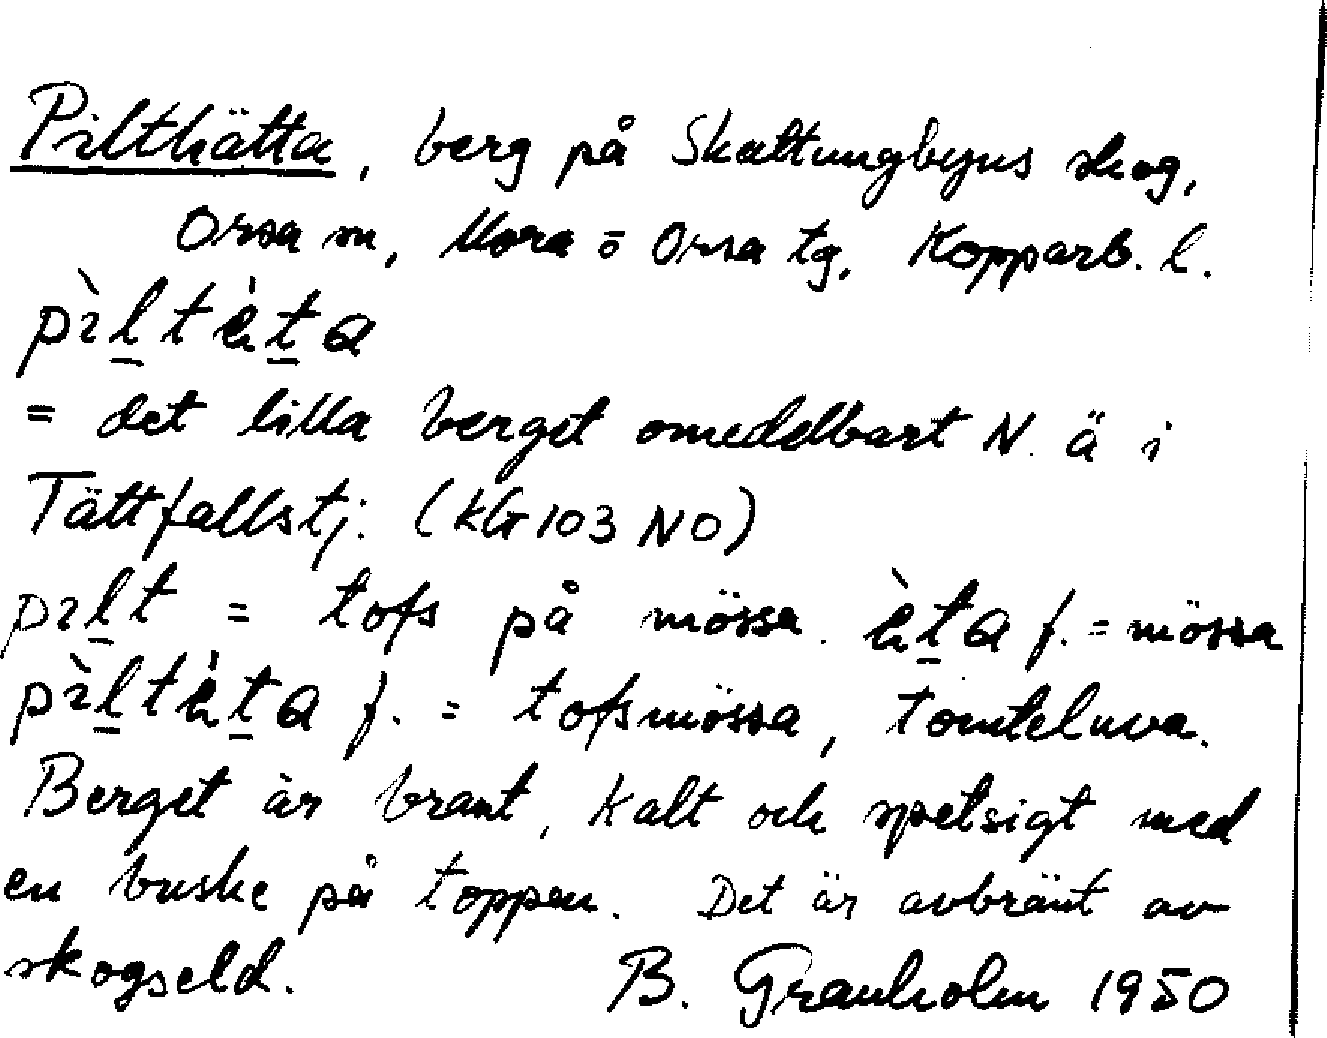 Pilthätta, berg på Skattungbyns skog,
Orsa sn, Mora o Orsa tg, Kopparb. l.
pìltäta
= det lilla berget omedelbart N. ä i
Tättfallstj. (kG 103 NO)
pilt = tofs på mössa. ä̀ta f. = mössa
pìltäta f. = tofsmössa, tomteluva.
Berget är brant, kalt och spetsigt med
en buske på toppen. Det är avbränt av
skogseld. B. Granholm 1950